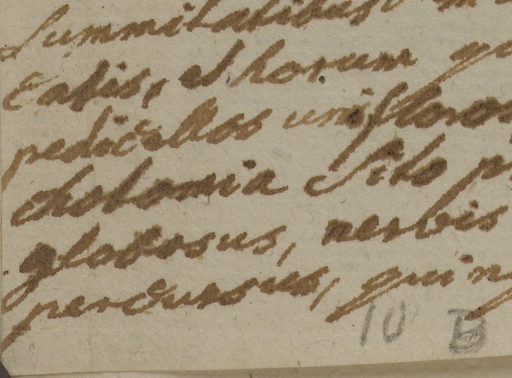 Summitatibus
Eatis, et horum
pedicellos unifloros
chotomia sito
globosus, nerbis
percursus, quinq
10 B